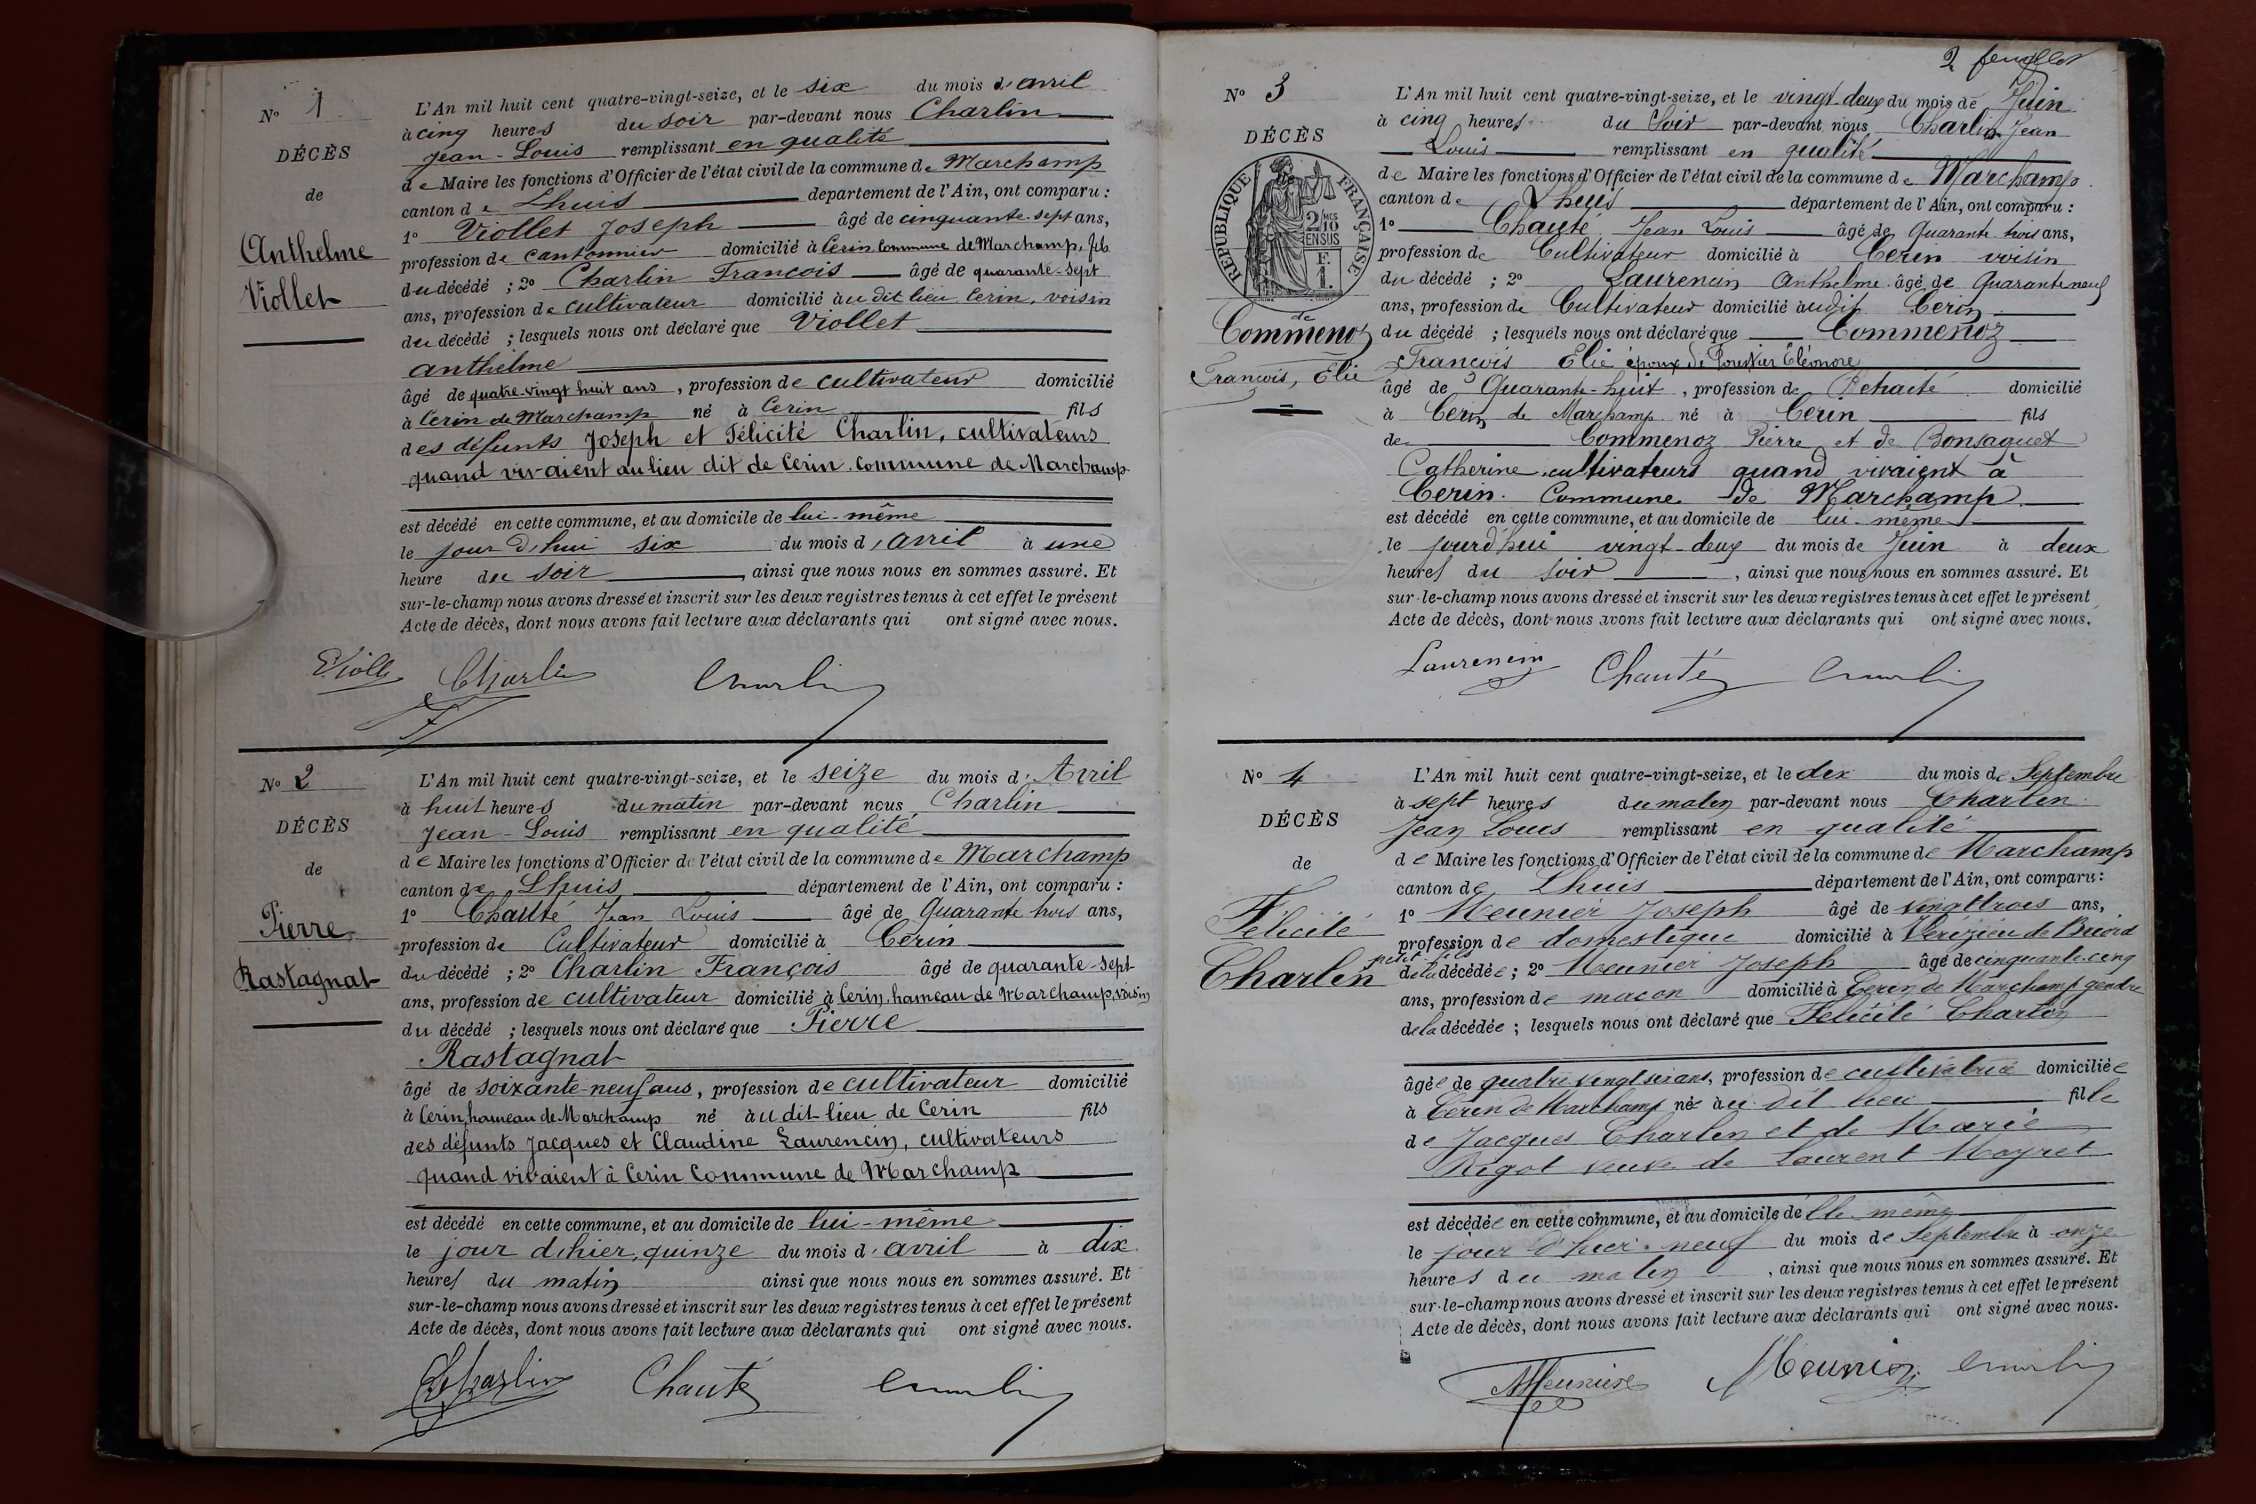 N° 1
DÉCÈS
de
Anthelme
Viollet
L'An mil huit cent quatre-vingt-seize, et le six du mois d'avril
à cinq heures du soir par-devant nous Charlin
Jean-Louis remplissant en qualité
de Maire les fonctions d'Officier de l'état civil de la commune de Marchamp
canton de Lhuis département de l'Ain, ont comparu :
1° Viollet Joseph âgé de cinquante-sept ans,
profession de cantonnier domicilié à Cerin commune de Marchamp, fils
du décédé ; 2° Charlin François âgé de quarante-sept
ans, profession de cultivateur domicilié au dit lieu Cerin, voisin
du décédé ; lesquels nous ont déclaré que Viollet
anthelme
âgé de quatre-vingt huit ans, profession de cultivateur domicilié
à Cerin de Marchamp né à Cerin fils
des défunts Joseph et Félicité Charlin, cultivateurs
quand vivaient au lieu dit de Cerin commune de Marchamp
est décédé en cette commune, et au domicile de lui-même
le jour d'hui six du mois d'avril à une
heure du soir, ainsi que nous nous en sommes assuré. Et
sur-le-champ nous avons dressé et inscrit sur les deux registres tenus à cet effet le présent
Acte de décès, dont nous avons fait lecture aux déclarants qui ont signé avec nous.
Charlin Charlin
N° 2
DÉCÈS
de
Pierre
Rastagnat
L'An mil huit cent quatre-vingt-seize, et le seize du mois d'Avril
à huit heures du matin par-devant nous Charlin
Jean-Louis remplissant en qualité
de Maire les fonctions d'Officier de l'état civil de la commune de Marchamp
canton de Lhuis département de l'Ain, ont comparu :
1° Chauté Jean Louis âgé de Quarante trois ans,
profession de Cultivateur domicilié à Cerin
du décédé ; 2° Charlin François âgé de quarante-sept
ans, profession de cultivateur domicilié à Cerin, hameau de Marchamp, voisin
du décédé ; lesquels nous ont déclaré que Pierre
Rastagnat
âgé de soixante-neuf ans, profession de cultivateur domicilié
à Cerin, hameau de Marchamp né au dit-lieu de Cerin fils
des défunts Jacques et Claudine Laurencin, cultivateurs
quand vivaient à Cerin Commune de Marchamp
est décédé en cette commune, et au domicile de lui-même
le jour d'hier, quinze du mois d'avril à dix
heures du matin ainsi que nous nous en sommes assuré. Et
sur-le-champ nous avons dressé et inscrit sur les deux registres tenus à cet effet le présent
Acte de décès, dont nous avons fait lecture aux déclarants qui ont signé avec nous.
Charlin Chauté Charlin
2 feuillet
N° 3
DÉCÈS
RÉPUBLIQUE FRANÇAISE
2/10
EN SUS
F.
1.
de
Commenoz
François, Elie
L'An mil huit cent quatre-vingt-seize, et le vingt-deux du mois de Juin
à cinq heures du Soir par-devant nous Charlin Jean
Louis remplissant en qualité
de Maire les fonctions d'Officier de l'état civil de la commune de Marchamp
canton de Lhuis département de l'Ain, ont comparu :
1° Chauté Jean Louis âgé de Quarante trois ans,
profession de Cultivateur domicilié à Cerin voisin
du décédé ; 2° Laurencin Anthelme âgé de Quarante neuf
ans, profession de Cultivateur domicilié audit Cerin
du décédé ; lesquels nous ont déclaré que Commenoz
François Elie époux de Eléonore
âgé de Quarante-huit, profession de Retraité domicilié
à Cerin de Marchamp né à Cerin fils
de Commenoz Pierre et de Bonsaquet
Catherine cultivateurs quand vivaient à
Cerin. Commune de Marchamp
est décédé en cette commune, et au domicile de lui-même
le jourd'hui vingt-deux du mois de Juin à deux
heures du soir, ainsi que nous nous en sommes assuré. Et
sur-le-champ nous avons dressé et inscrit sur les deux registres tenus à cet effet le présent
Acte de décès, dont nous avons fait lecture aux déclarants qui ont signé avec nous.
Laurencin Chauté Charlin
N° 4
DÉCÈS
de
Félicité
Charlin
L'An mil huit cent quatre-vingt-seize, et le dix du mois de Septembre
à sept heures du matin par-devant nous Charlin
Jean Louis remplissant en qualité
de Maire les fonctions d'Officier de l'état civil de la commune de Marchamp
canton de Lhuis département de l'Ain, ont comparu :
1° Meunier Joseph âgé de vingt trois ans,
profession de domestique domicilié à Vérizieu de Briord
petit fils
de la décédée ; 2° Meunier Joseph âgé de cinquante-cinq
ans, profession de maçon domicilié à Cerin de Marchamp gendre
de la décédée ; lesquels nous ont déclaré que Félicité Charlin
âgée de quatre vingt six ans, profession de cultivatrice domiciliée
à Cerin de Marchamp née au dit lieu fille
de Jacques Charlin et de Marie
Rigot veuve de Laurent Moyret
est décédée en cette commune, et au domicile d'elle même
le jour d'hier neuf du mois de Septembre à onze
heures du matin, ainsi que nous nous en sommes assuré. Et
sur-le-champ nous avons dressé et inscrit sur les deux registres tenus à cet effet le présent
Acte de décès, dont nous avons fait lecture aux déclarants qui ont signé avec nous.
Meunier Meunier Charlin